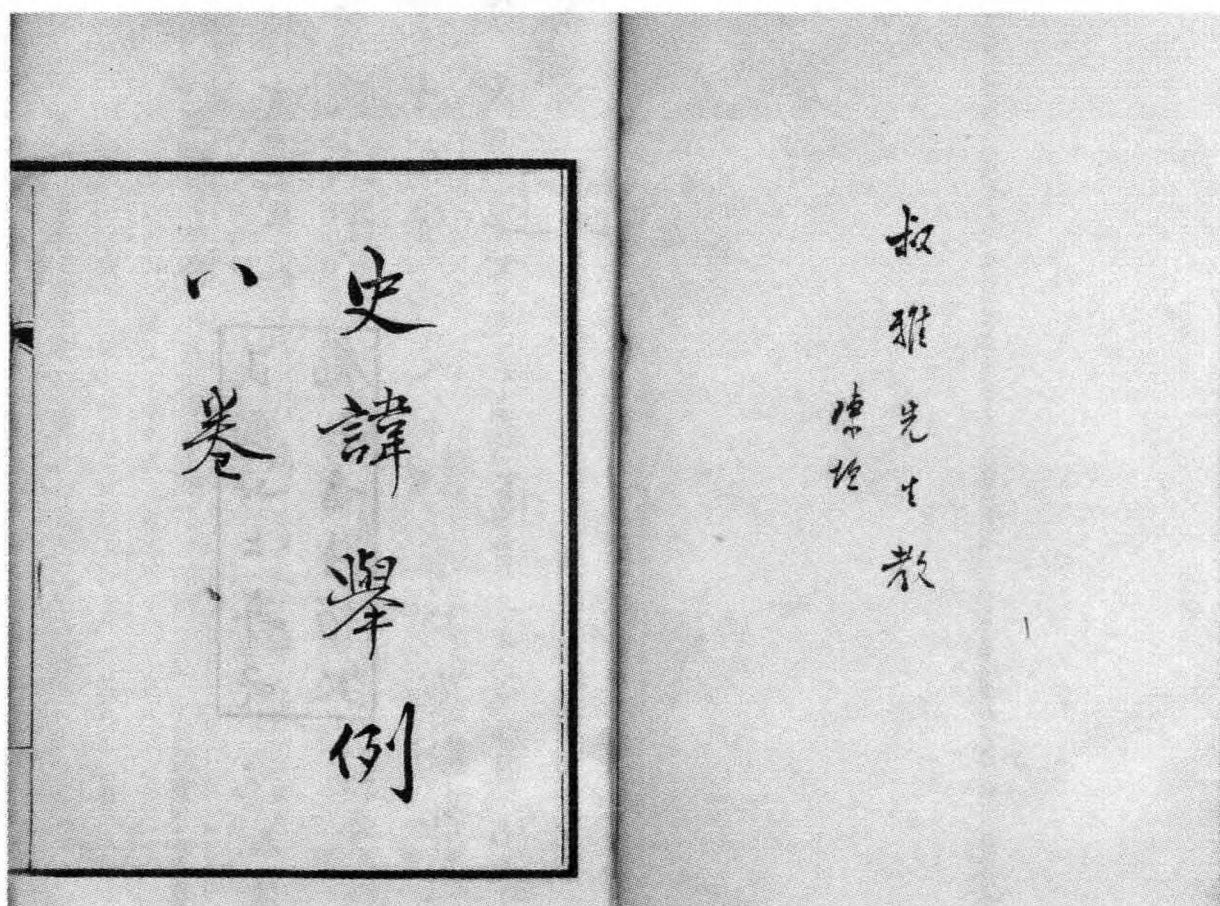 叔雅先生教
陳垣
史諱舉例
八卷